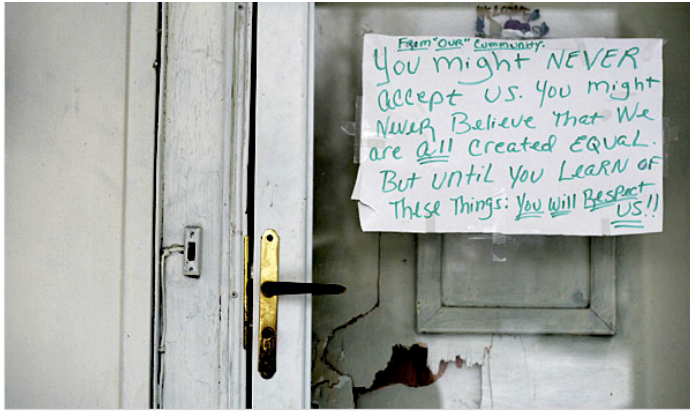 From "OUR" Community.
You might NEVER
accept us. You might
Never Believe That We
are all created EQUAL.
But until You LearN OF
These Things: You Will Respect
US!!